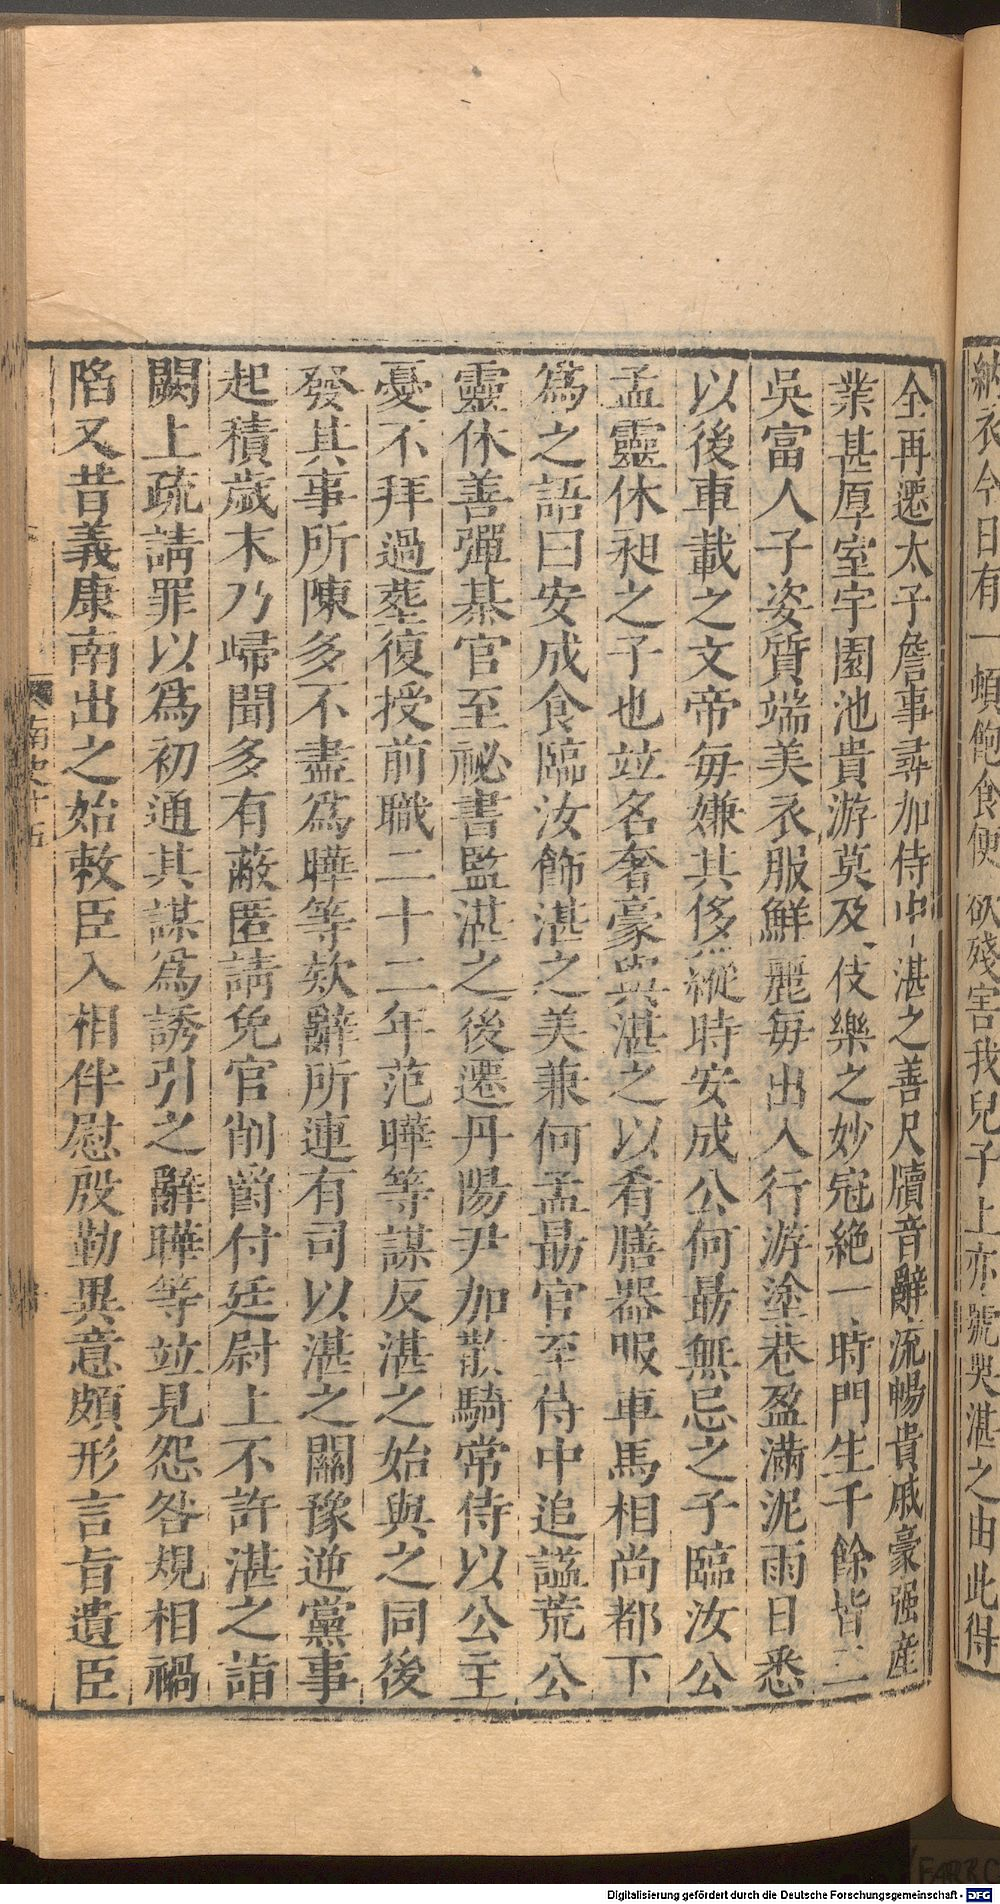 納衣今日有一頓飽食便欲殘害我兒子上亦號哭湛之由此得
全再遷太子詹事尋加侍中湛之善尺牘音辭流暢貴戚豪强産
業甚厚室宇園池貴游莫及伎樂之妙冠絶一時門生千餘皆三
吳富人子姿質端美衣服鮮麗每出入行游塗巷盈滿泥雨日悉
以後車載之文帝每嫌其侈縱時安成公何勗無忌之子臨汝公
孟靈休昶之子也竝名奢豪與湛之以肴膳器服車馬相尚都下
爲之語曰安成食臨汝飾湛之美兼何孟勗官至侍中追諡荒公
靈休善彈棊官至祕書監湛之後遷丹陽尹加散騎常侍以公主
憂不拜過葬復授前職二十二年范曄等謀反湛之始與之同後
發其事所陳多不盡爲曄等欵辭所連有司以湛之關豫逆黨事
起積歲末乃歸聞多有蔽匿請免官削爵付廷尉上不許湛之詣
闕上疏請罪以爲初通其謀爲誘引之辭曄等竝見怨咎規相禍
陷又昔義康南出之始敕臣入相伴慰殷勤異意頗形言旨遺臣
南史十五
Digitalisierung gefördert durch die Deutsche Forschungsgemeinschaft - DFG